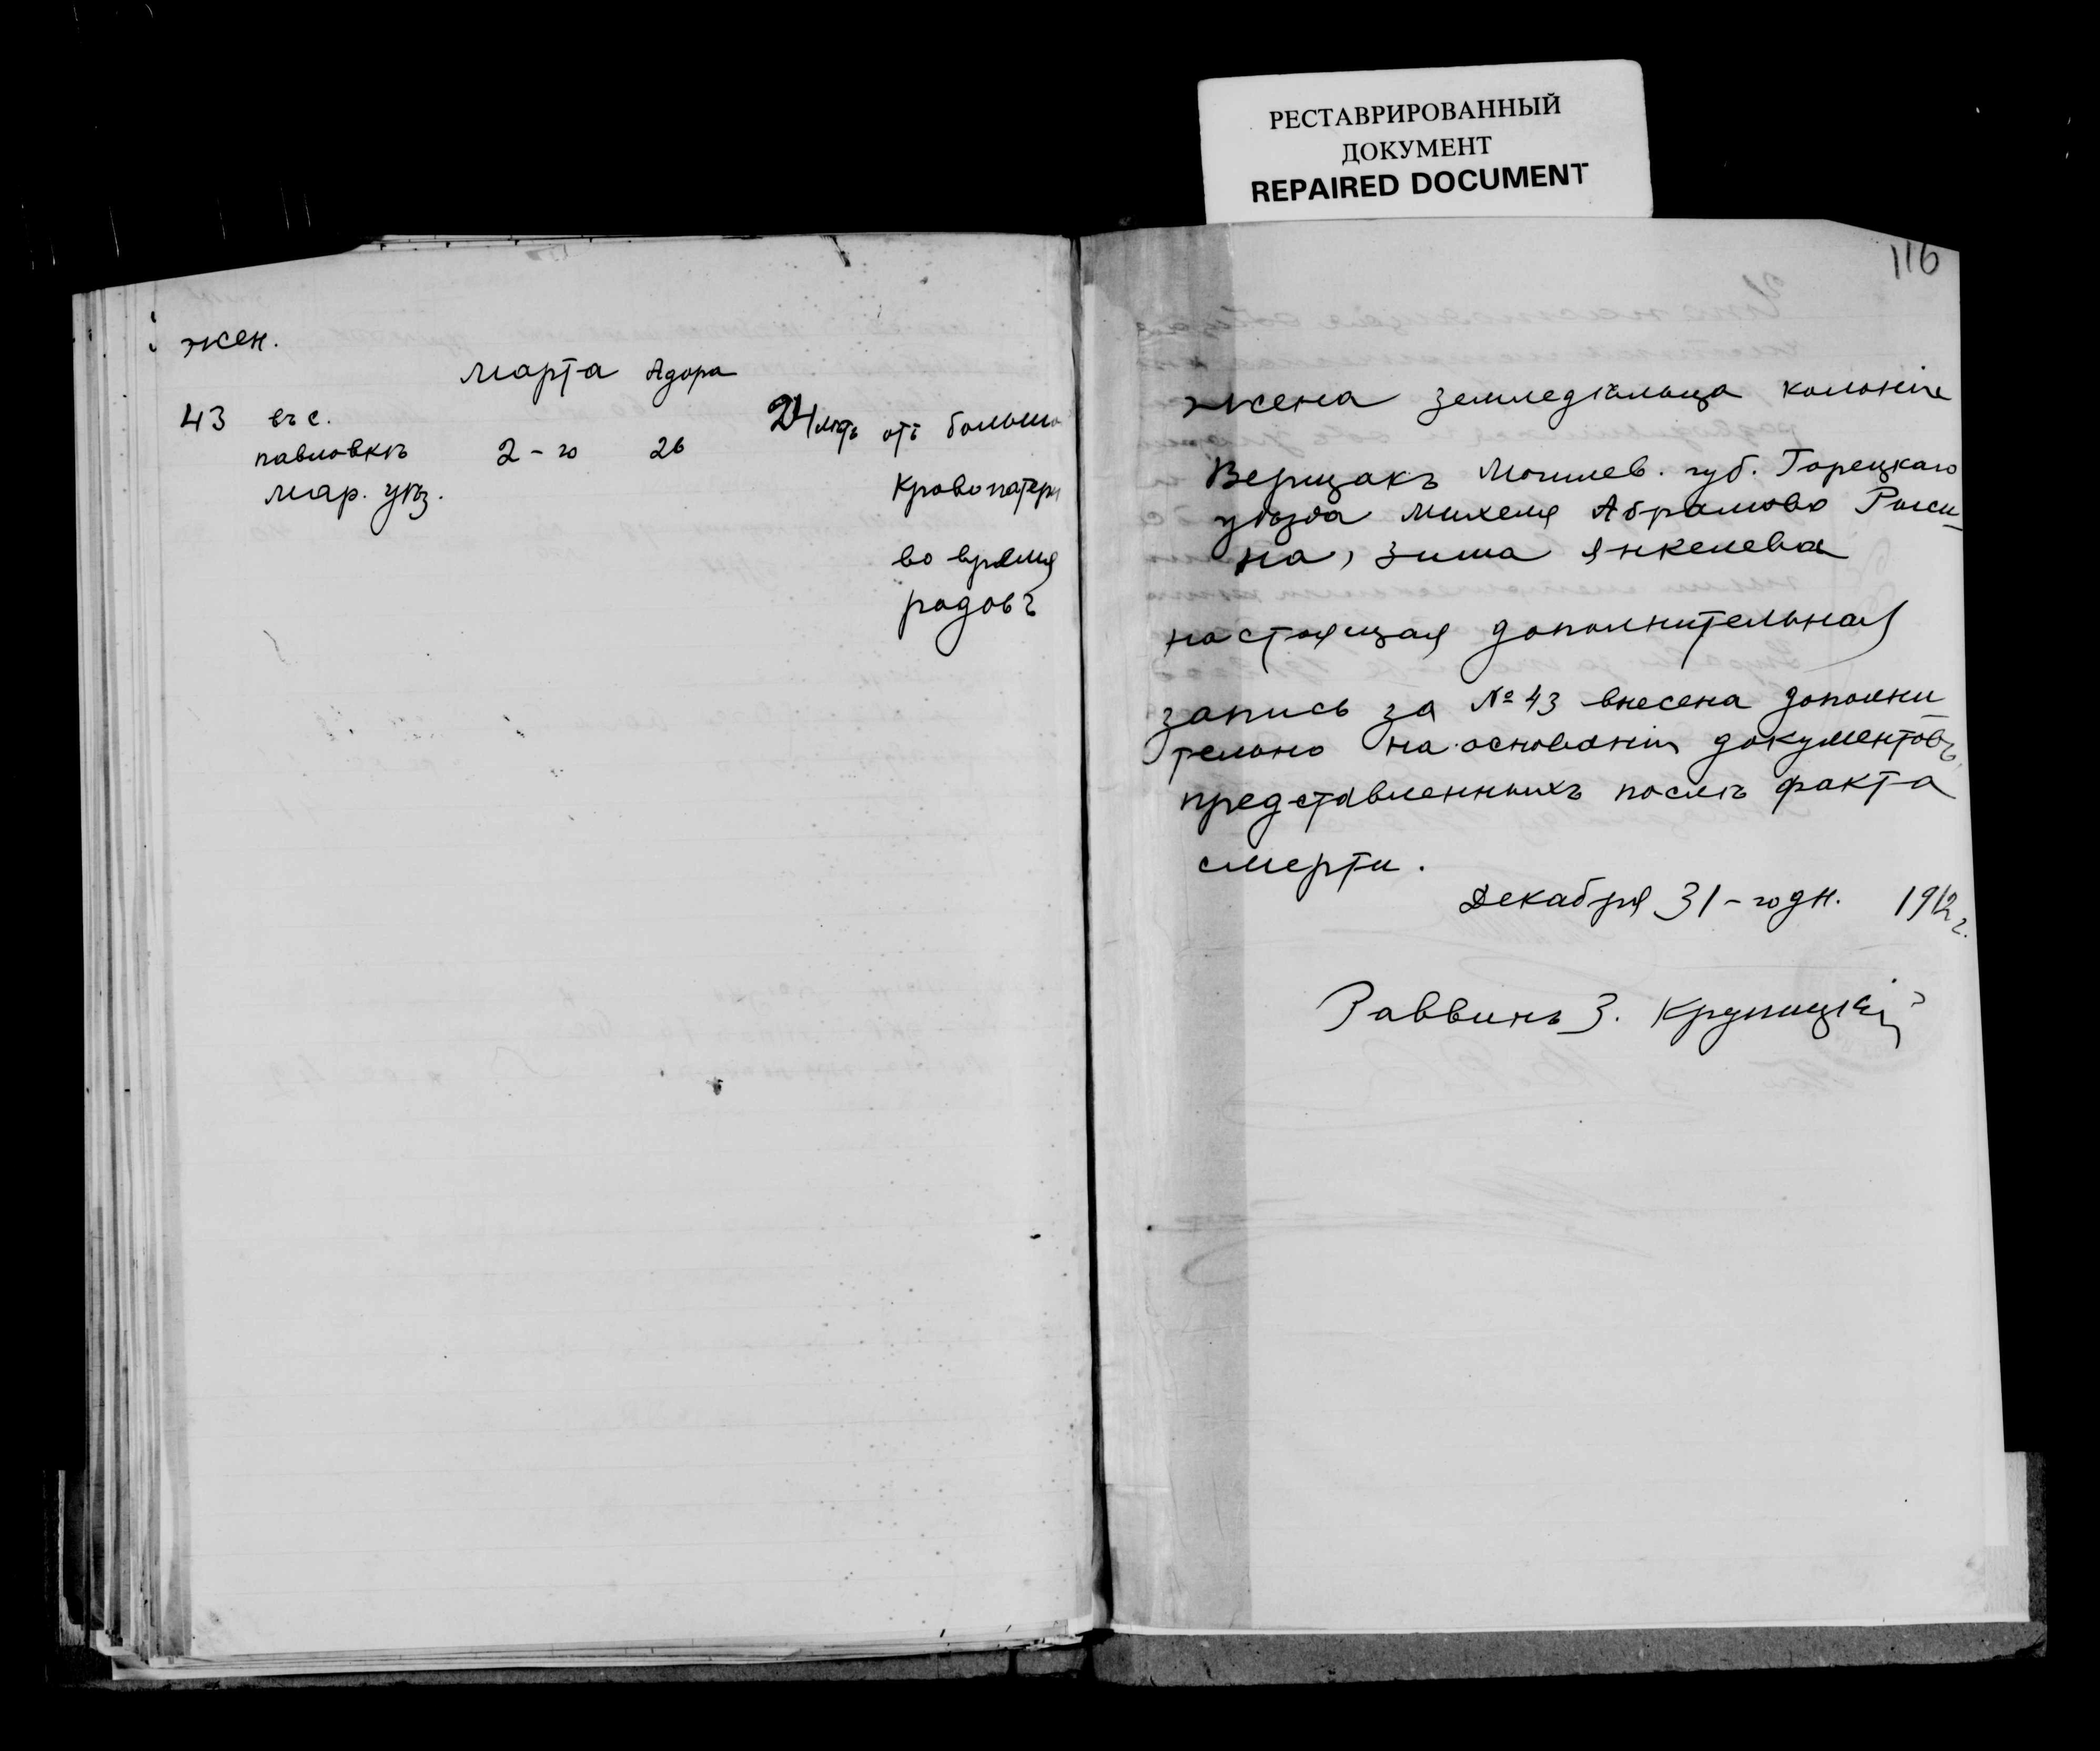 РЕСТАВРИРОВАННЫЙ
ДОКУМЕНТ
REPAIRED DOCUMENT
116
жен.
марта Адора
43 въ с. 2-го 26 24 летъ отъ большо
павловкѣ
мар. уѣз.
кровопатери
во время
родовъ
жена земледѣльца колоніи
Верщакъ Могилев. губ. Горецкаго
уѣзда Михеля Абрамова
на, Зима Янкелева
настоящая дополнительная
запись за № 43 внесена дополни
тельно на основаніи документовъ,
представленныхъ послѣ факта
смерти.
Декабря 31-го дн. 1912 г.
Раввинъ З. Крупицкій